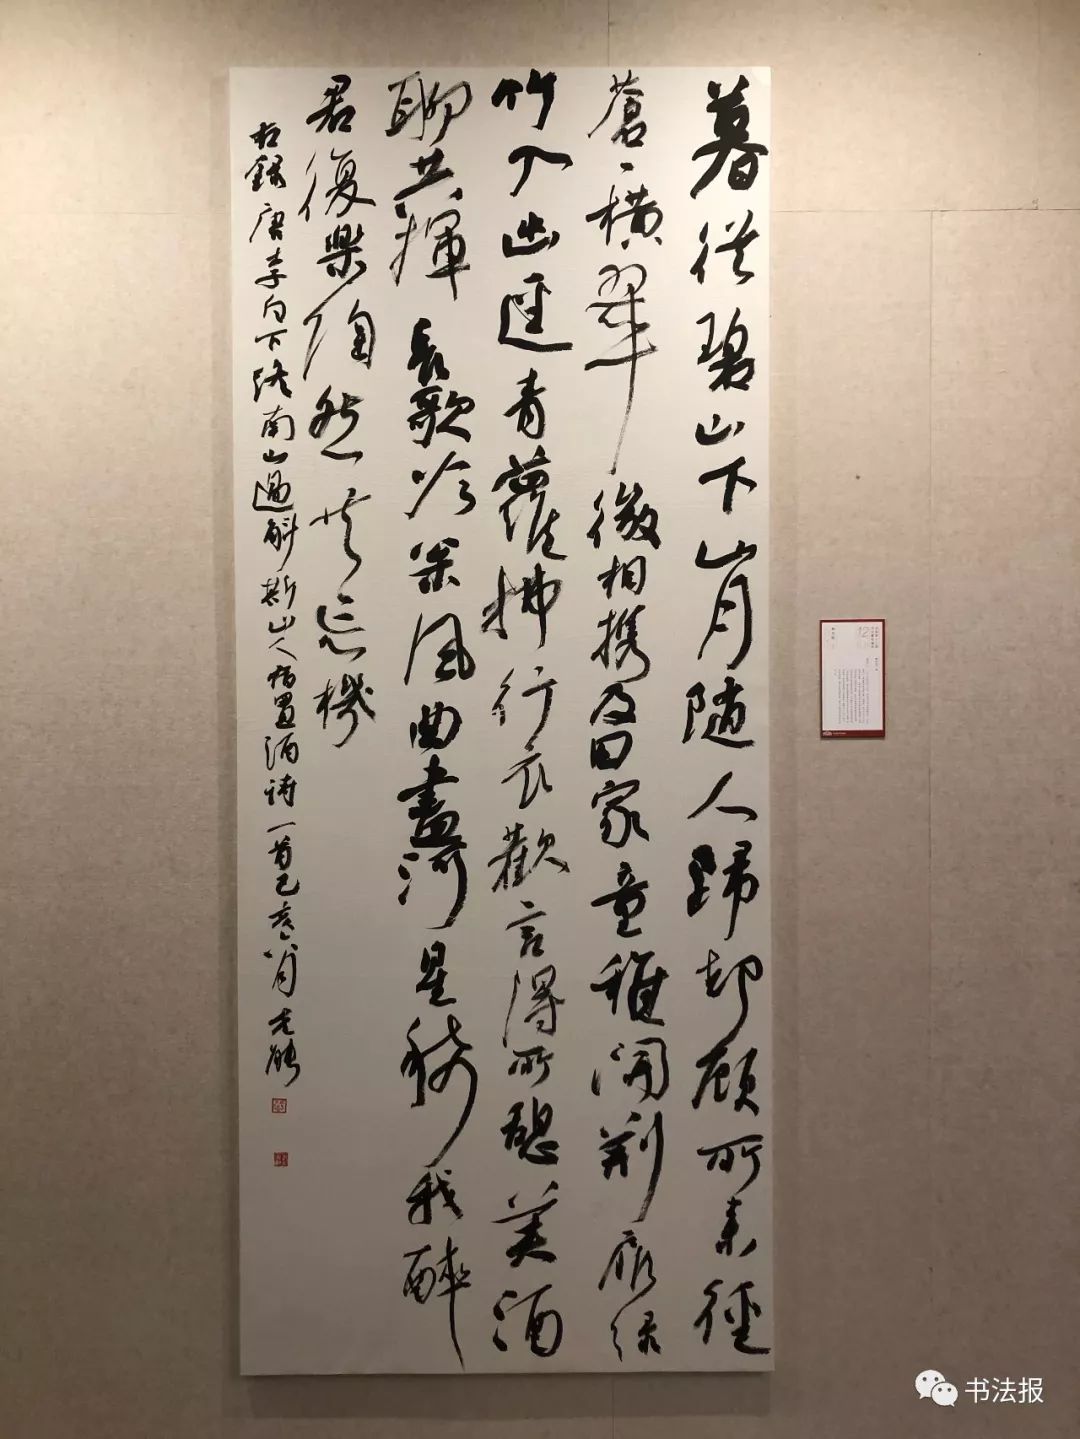 暮從碧山下山月随人歸却顧所来徑
蒼、橫翠微相携及田家童稚開荆扉绿
竹入幽逕青蘿拂行衣歡言得所憩美酒
聊共揮長歌吟松風曲盡河星稀我醉
君復樂陶然共忘機
右録唐李白下终南山過斛斯山人宿置酒诗一首己亥八月
12
书法报